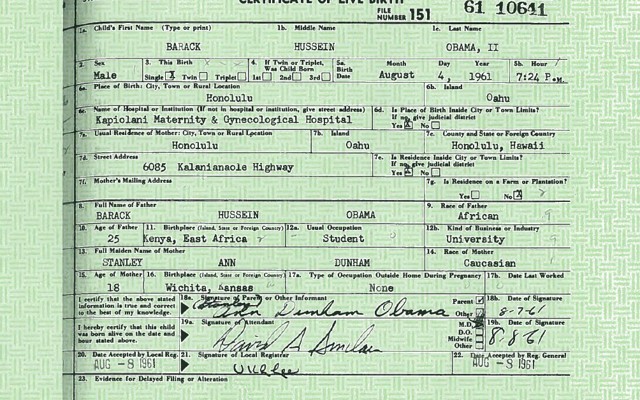 CERTIFICATE OF LIVE BIRTH
FILE NUMBER 151 61 10641
1a. Child's First Name (Type or print) 1b. Middle Name 1c. Last Name
BARACK HUSSEIN OBAMA, II
2. Sex 3. This Birth 4. If Twin or Triplet, Was Child Born 5a. Birth Date Month Day Year 5b. Hour
Male Single X Twin Triplet 1st 2nd 3rd August 4, 1961 7:24 P.M.
6a. Place of Birth: City, Town or Rural Location 6b. Island
Honolulu Oahu
6c. Name of Hospital or Institution (If not in hospital or institution, give street address) 6d. Is Place of Birth Inside City or Town Limits? If no, give judicial district
Kapiolani Maternity & Gynecological Hospital Yes X No
7a. Usual Residence of Mother: City, Town or Rural Location 7b. Island 7c. County and State or Foreign Country
Honolulu Oahu Honolulu, Hawaii
7d. Street Address 7e. Is Residence Inside City or Town Limits? If no, give judicial district
6085 Kalanianaole Highway Yes X No
7f. Mother's Mailing Address 7g. Is Residence on a Farm or Plantation?
Yes No X
8. Full Name of Father 9. Race of Father
BARACK HUSSEIN OBAMA African 9
10. Age of Father 11. Birthplace (Island, State or Foreign Country) 12a. Usual Occupation 12b. Kind of Business or Industry
25 Kenya, East Africa Student University
13. Full Maiden Name of Mother 14. Race of Mother
STANLEY ANN DUNHAM Caucasian
15. Age of Mother 16. Birthplace (Island, State or Foreign Country) 17a. Type of Occupation Outside Home During Pregnancy 17b. Date Last Worked
18 Wichita, Kansas None
I certify that the above stated information is true and correct to the best of my knowledge. 18a. Signature of Parent or Other Informant Parent Other 18b. Date of Signature
(Stanley) Ann Dunham Obama 8-7-61
I hereby certify that this child was born alive on the date and hour stated above. 19a. Signature of Attendant M.D. D.O. Midwife Other 19b. Date of Signature
David A Sinclair 8-8-61
20. Date Accepted by Local Reg. 21. Signature of Local Registrar 22. Date Accepted by Reg. General
AUG -8 1961 UKLee AUG -8 1961
23. Evidence for Delayed Filing or Alteration